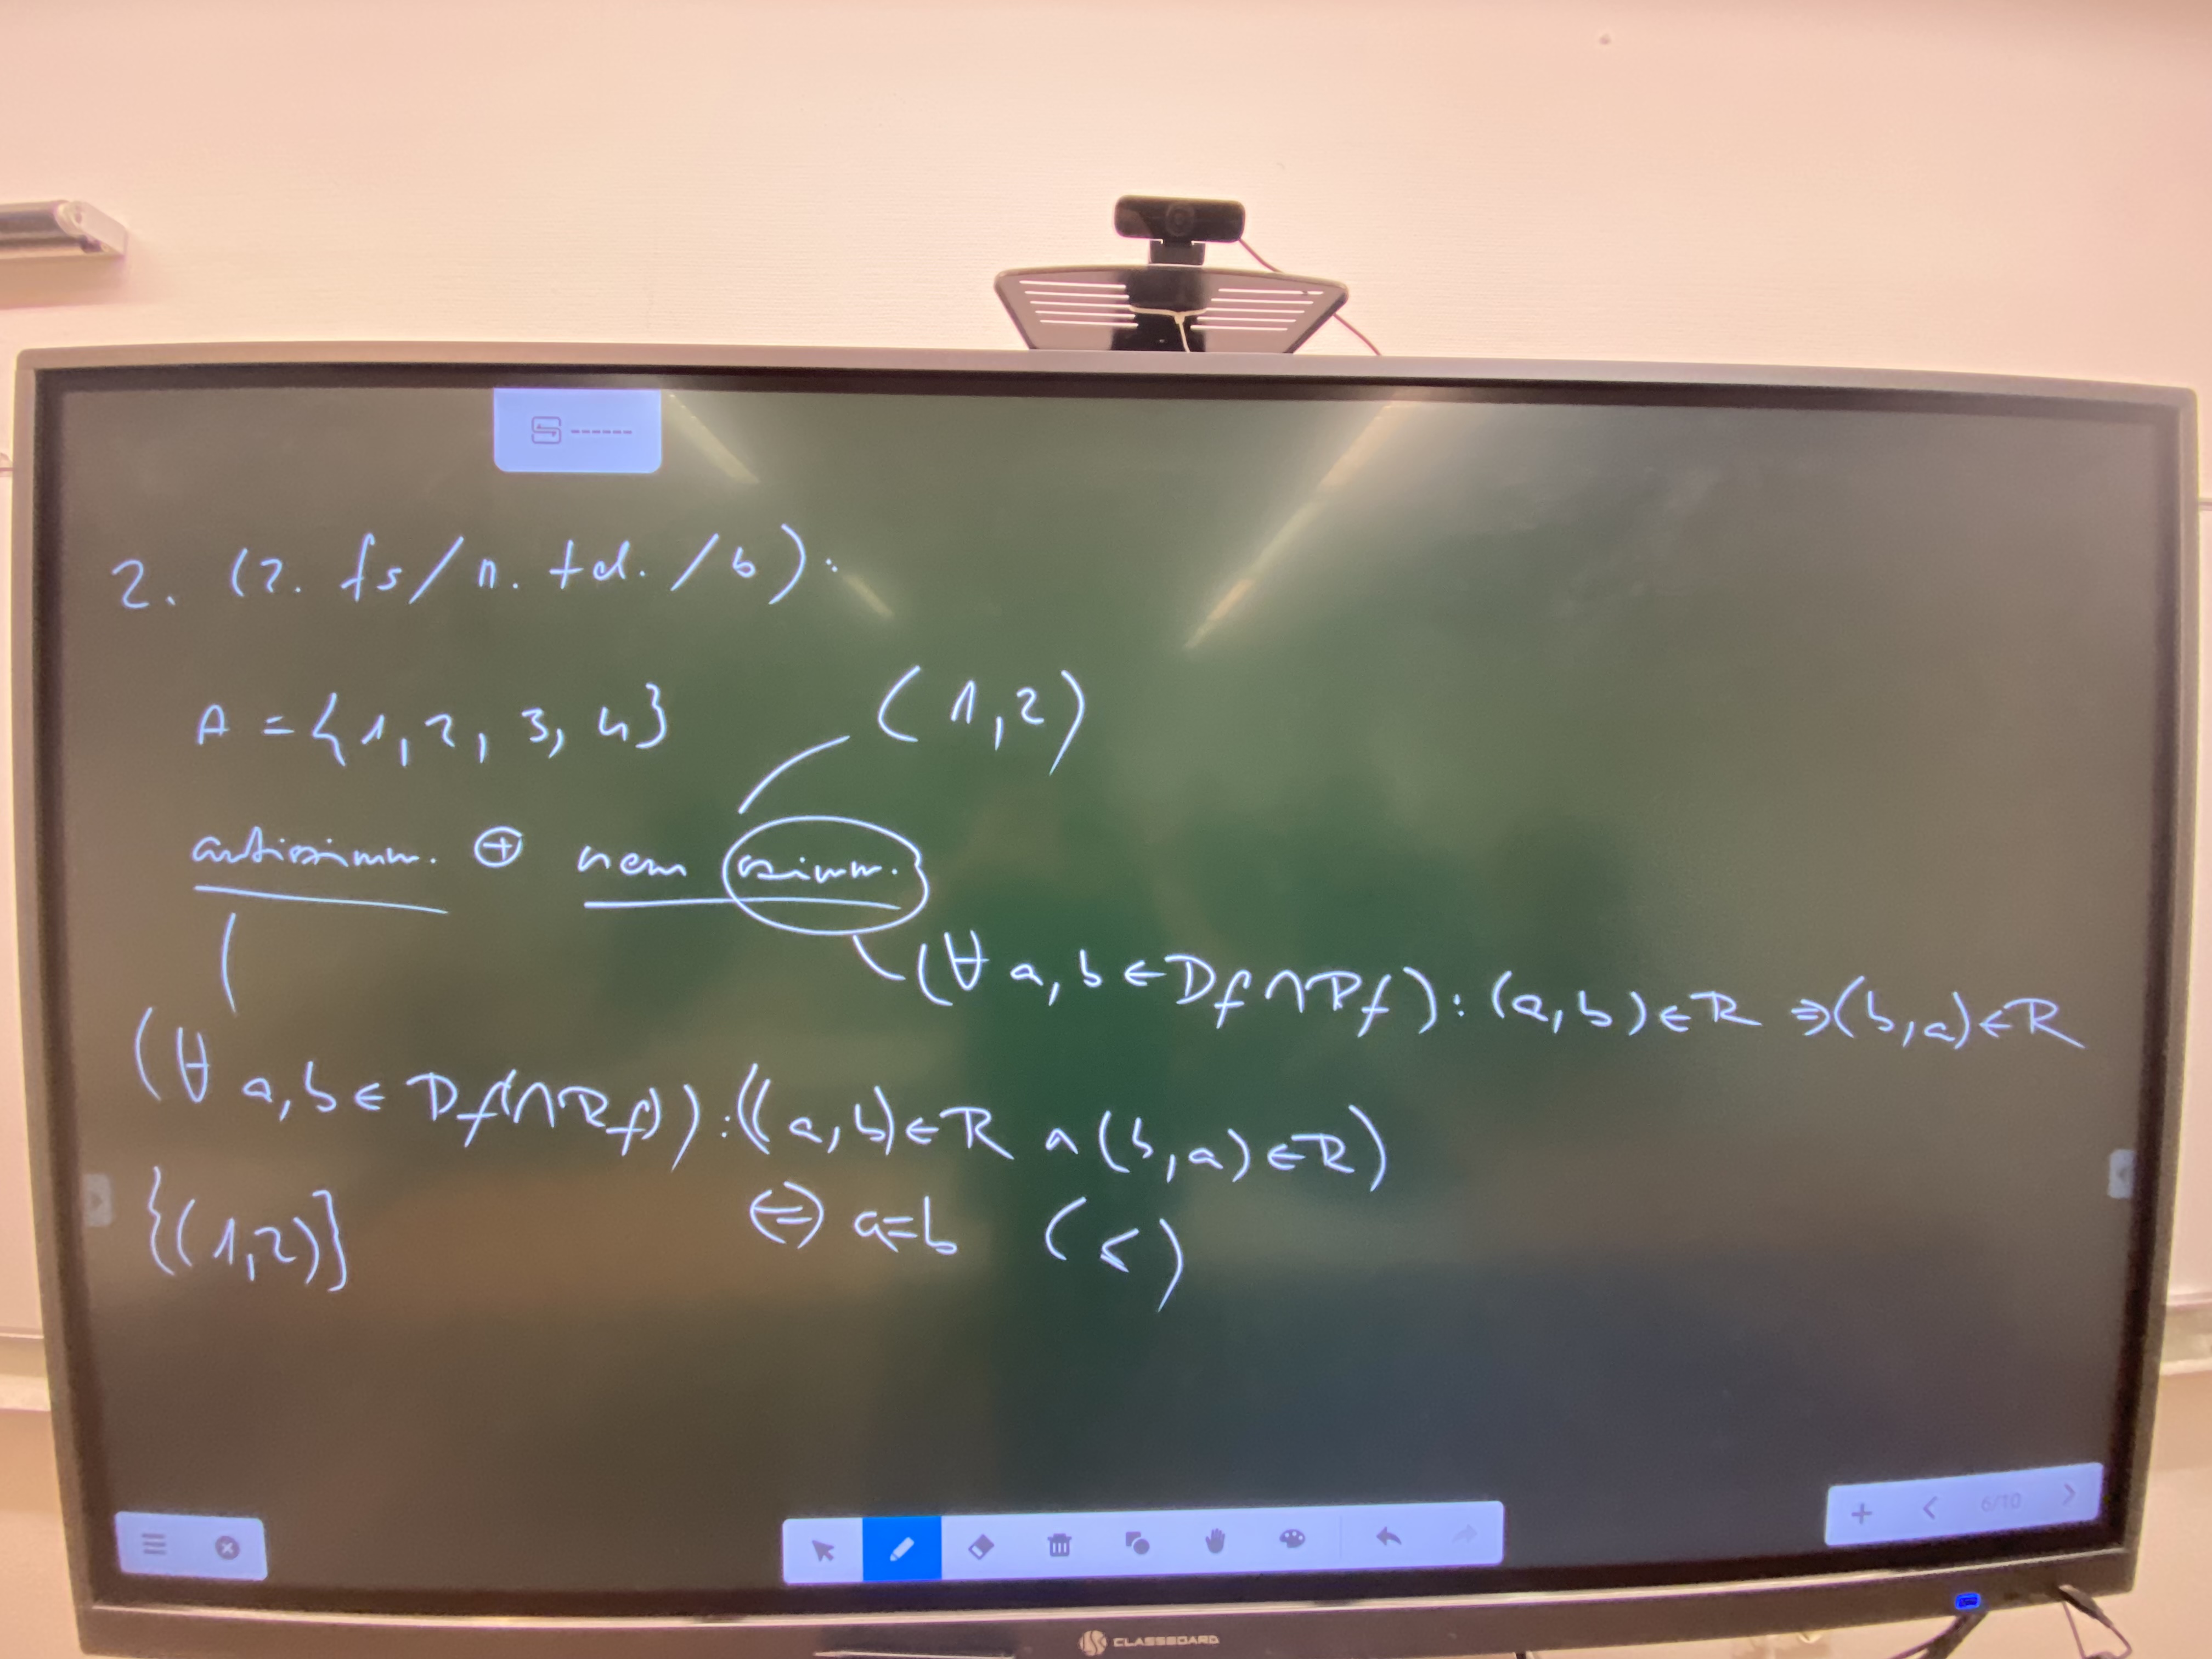 2. (2. fs/n. td./b):
A = {1, 2, 3, 4}
(1, 2)
antiszimm. ⊕ nem szimm.
(∀ a, b ∈ Df ∩ Rf): (a, b) ∈ R ⇒ (b, a) ∈ R
(∀ a, b ∈ Df(∩ Rf)): ((a, b) ∈ R ∧ (b, a) ∈ R)
{(1, 2)}
⇔ a=b (≤)
6/10
CLASSBOARD